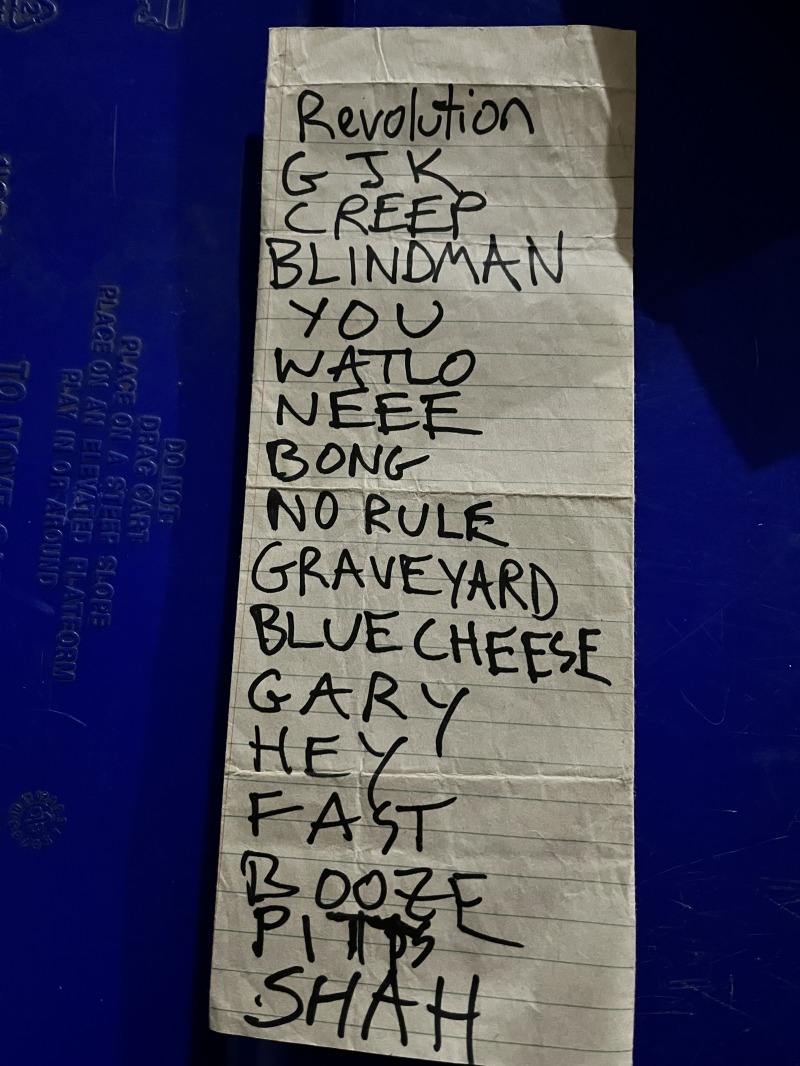 Revolution
G J K
CREEP
BLINDMAN
YOU
WATLO
NEEE
BONG
NO RULE
GRAVEYARD
BLUE CHEESE
GARY
HEY
FAST
BOOZE
SHAH
DO NOT:
DRAG CART
PLACE ON A STEEP SLOPE
PLACE ON AN ELEVATED PLATFORM
PLAY IN OR AROUND